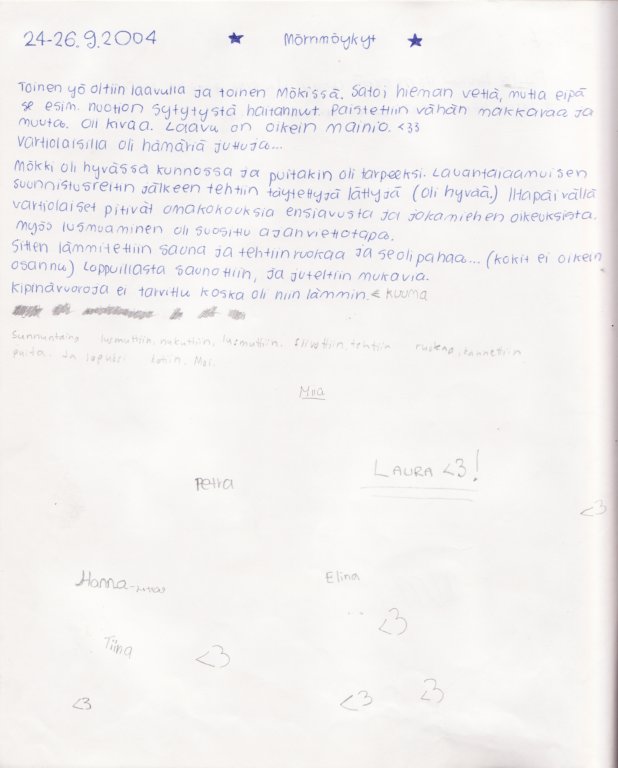 24-26.9.2004 ★ Mörmmöykyt ★
Toinen yö oltiin laavulla ja toinen Mökissä. Satoi hieman vettä, mutta eipä
se esim. nuotion sytytystä haitannut. Paistettiin vähän makkaraa ja
muuta. Oli kivaa. Laavu on oikein mainio. <33
Vartiolaisilla oli hämäriä juttuja...
Mökki oli hyvässä kunnossa ja puitakin oli tarpeeksi. Lauantaiaamuisen
suunnistusreitin jälkeen tehtiin täytettyjä lättyjä (oli hyvää.) Iltapäivällä
vartiolaiset pitivät omakokouksia ensiavusta ja jokamiehen oikeuksista.
Myös lusmuaminen oli suosittu ajanviettotapa.
Sitten lämmitettiin sauna ja tehtiin ruokaa ja se oli pahaa... (kokit ei oikein
osannu) Loppuillasta saunottiin, ja juteltiin mukavia.
Kipinävuoroja ei tarvittu koska oli niin lämmin. < kuuma
Sunnuntaina lusmuttiin, nukuttiin, lusmuttiin. Siivottiin, tehtiin ruokaa, kannettiin
puita. Ja lopuksi kotiin. Moi.
Miia
LAURA <3!
Petra
<3
Hanna
Elina
<3
Tiina <3
<3 <3 <3